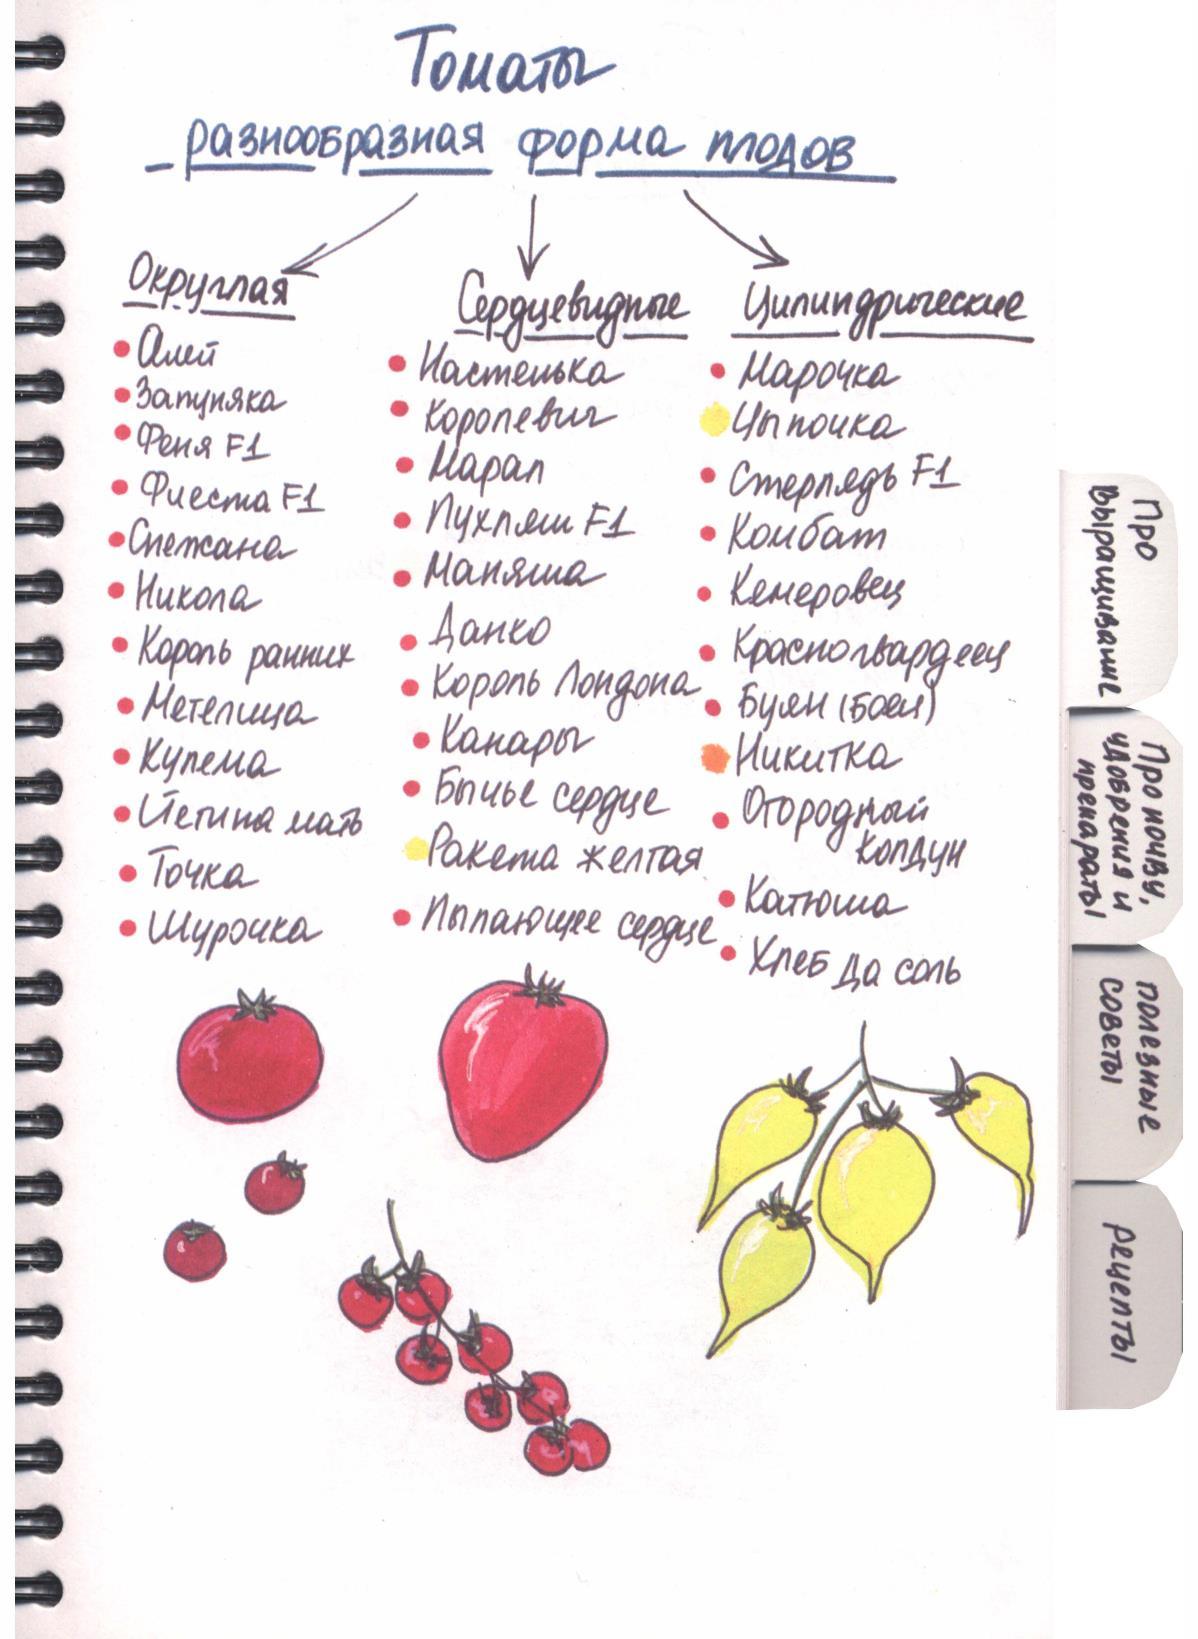 Томаты
разнообразная форма плодов
Округлая
Алей
Загуляка
Феня F1
Фиеста F1
Снежана
Никола
Король ранних
Метелица
Купема
Йегина мать
Точка
Шурочка
Сердцевидные
Настенька
Королевич
Марал
Пухляш F1
Маняша
Данко
Король Лондона
Канары
Бычье сердце
Ракета желтая
Пылающее сердце
Цилиндрические
Марочка
Цыпочка
Стерлядь F1
Комбат
Кемеровец
Красногвардеец
Буян (Боец)
Никитка
Огородный
колдун
Катюша
Хлеб да соль
Про
выращивание
Про почву,
удобрения и
препараты
полезные
советы
рецепты